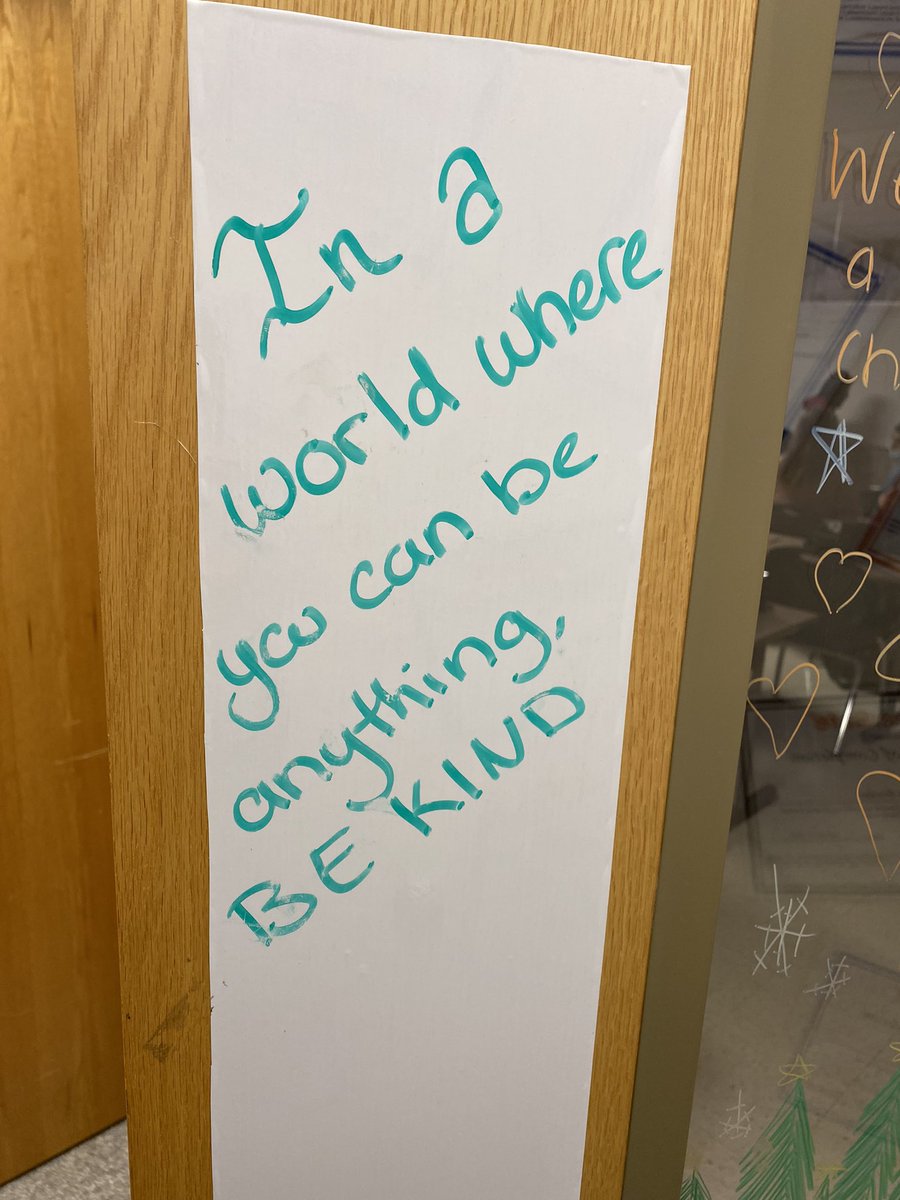 In a
world where
you can be
anything,
BE KIND
We
a